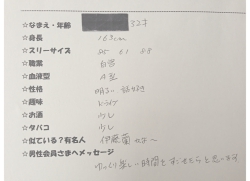 ☆なまえ・年齢 32才
☆身長 162cm
☆スリーサイズ
☆職業 自営
☆血液型 A型
☆性格 明るい 話好き
☆趣味 ドライブ
☆お酒 少し
☆タバコ 少し
☆似ている？有名人 伊藤蘭 かな〜
☆男性会員さまへメッセージ
ゆっくり楽しい時間をすごせたらと思います